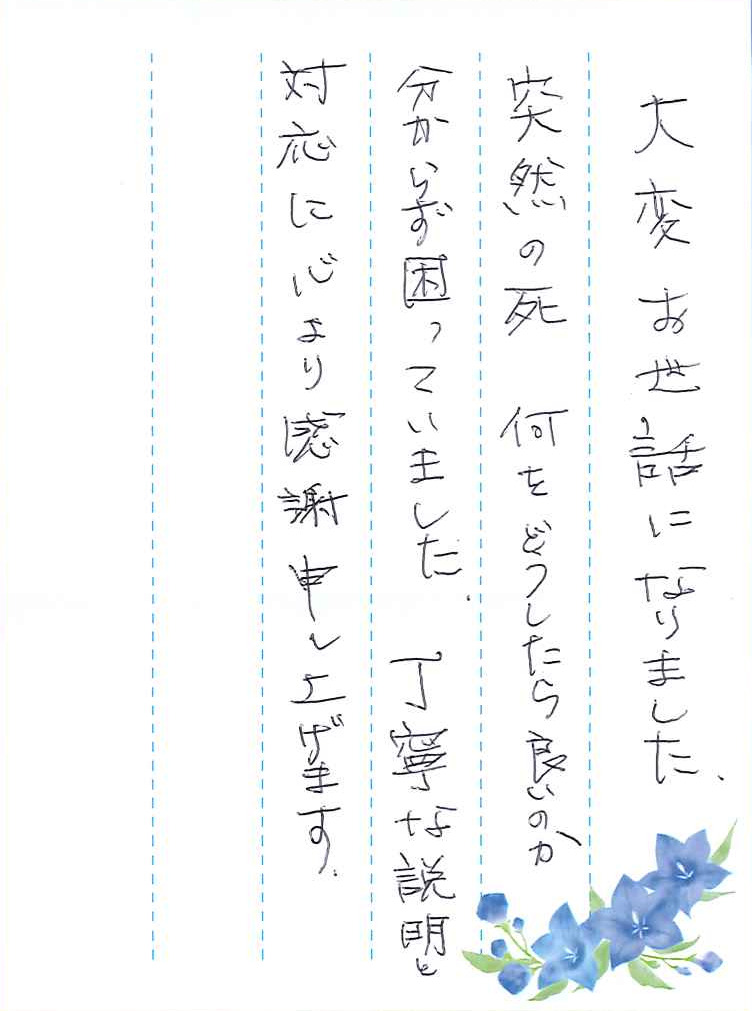 大変お世話になりました.
突然の死 何をどうしたら良いのか
分からず困っていました. 丁寧な説明と
対応に心より感謝申し上げます.